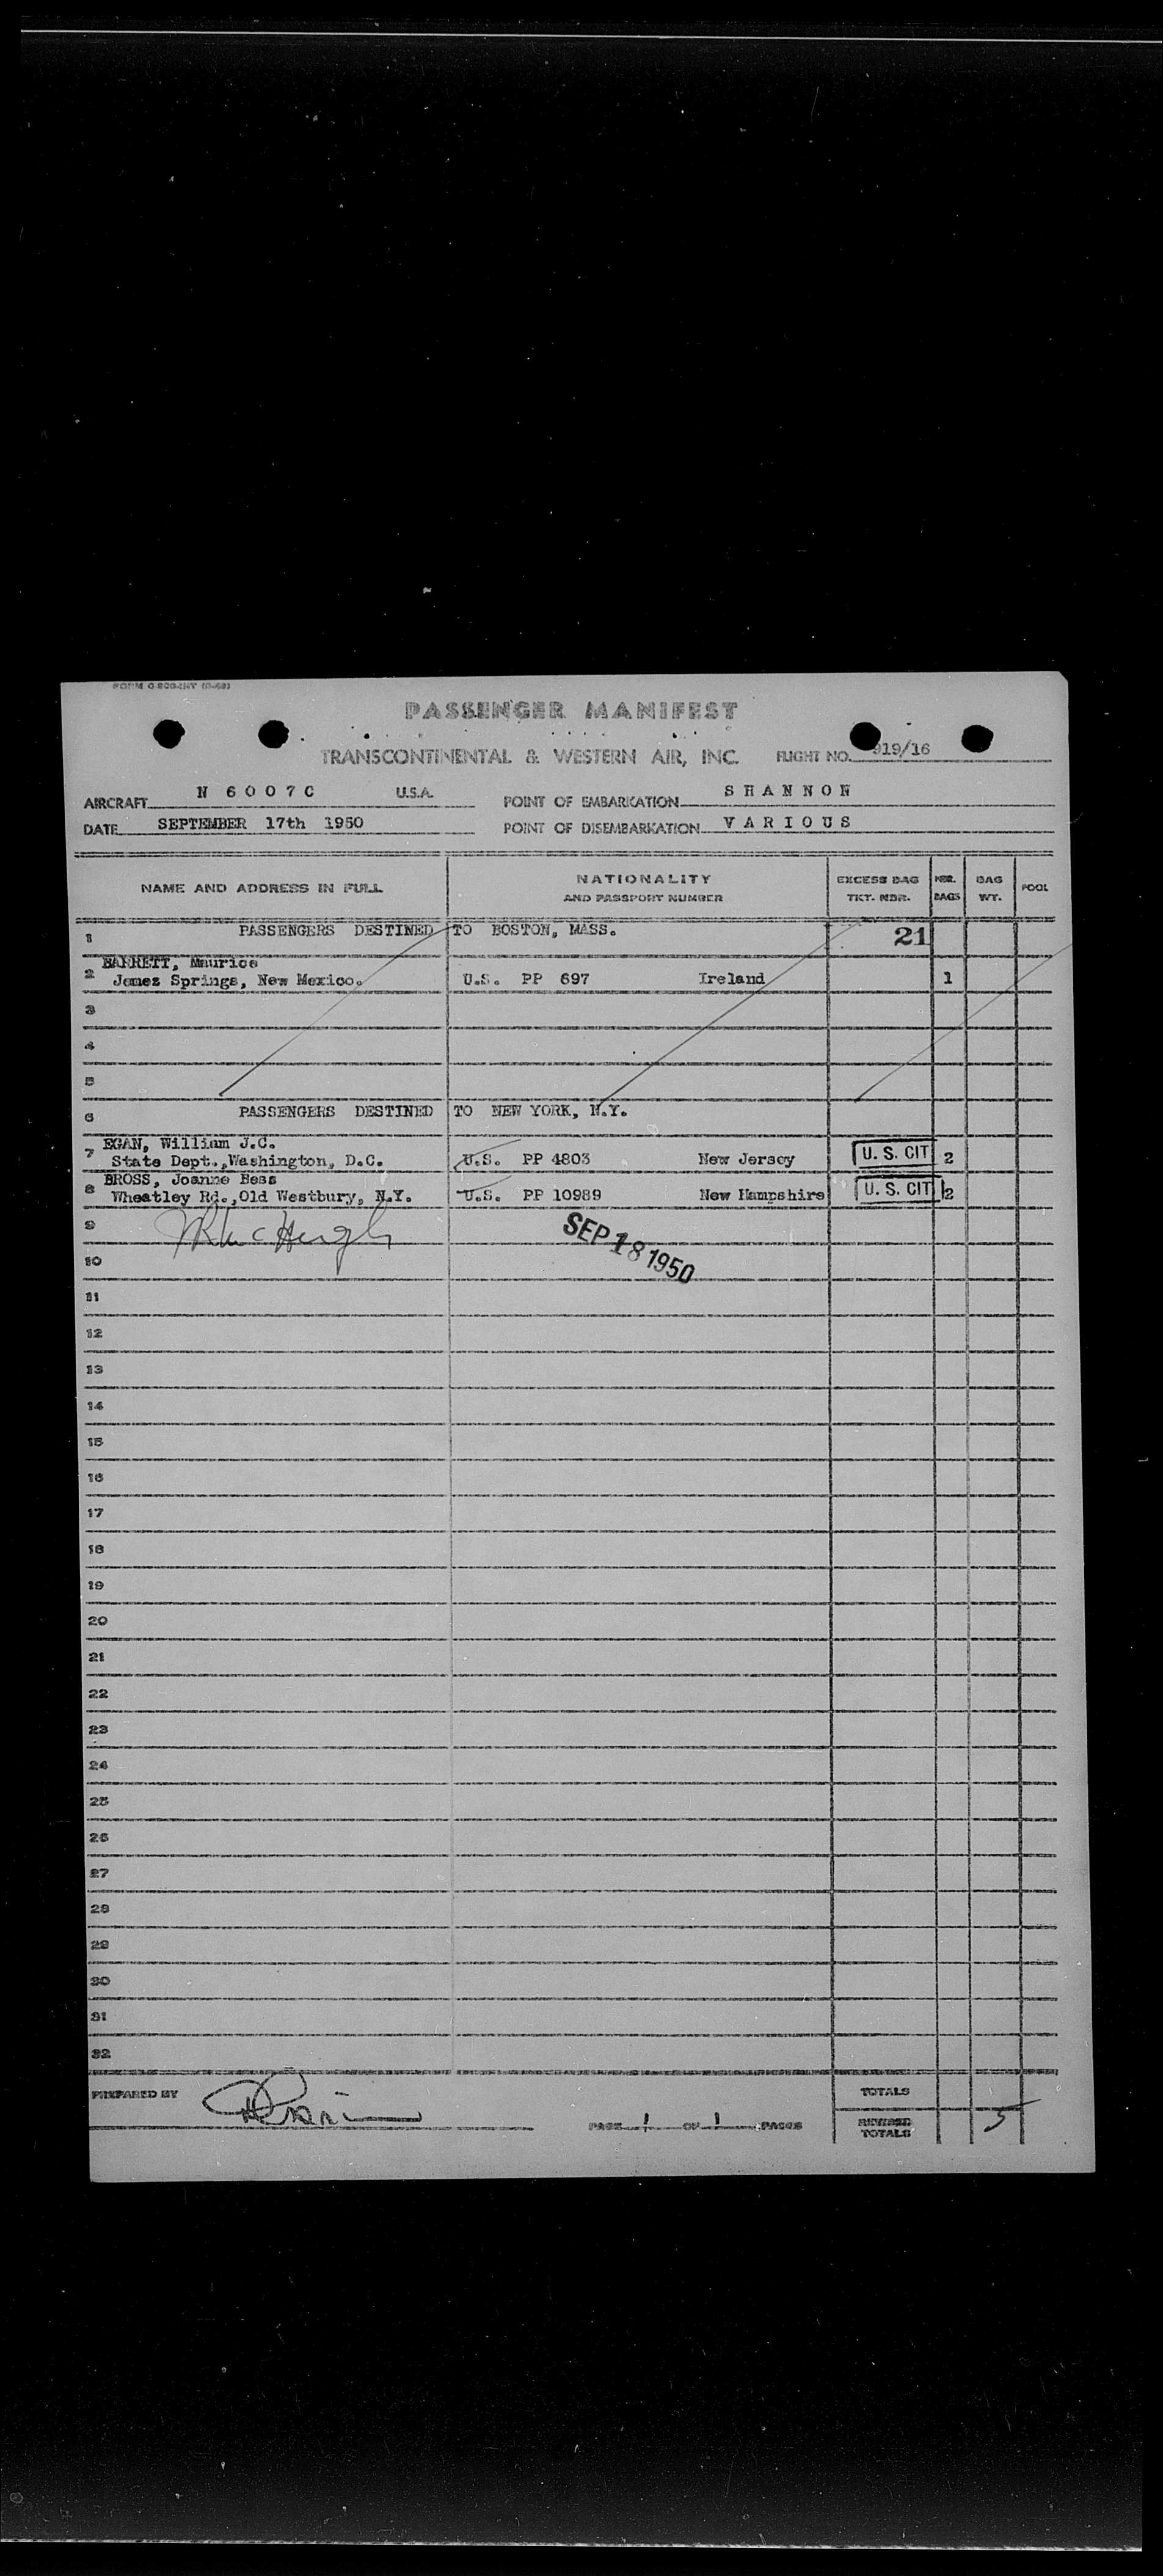 PASSENGER MANIFEST
TRANSCONTINENTAL & WESTERN AIR, INC. FLIGHT NO. 919/16
AIRCRAFT N 6007C U.S.A. POINT OF EMBARKATION SHANNON
DATE SEPTEMBER 17th 1950 POINT OF DISEMBARKATION VARIOUS
NAME AND ADDRESS IN FULL NATIONALITY AND PASSPORT NUMBER EXCESS BAG TKT. NBR. NBR. BAGS BAG WT. POOL
1 PASSENGERS DESTINED TO BOSTON, MASS. 21
BARRETT, Maurice
2 Jemez Springs, New Mexico. U.S. PP 697 Ireland 1
3
4
5
6 PASSENGERS DESTINED TO NEW YORK, N.Y.
EGAN, William J.C.
7 State Dept., Washington, D.C. U.S. PP 4803 New Jersey U. S. CIT 2
BROSS, Joanne Bess
8 Wheatley Rd., Old Westbury, N.Y. U.S. PP 10989 New Hampshire U. S. CIT 2
9 McHugh
SEP 18 1950
10
11
12
13
14
15
16
17
18
19
20
21
22
23
24
25
26
27
28
29
30
31
32
PREPARED BY TOTALS
PAGE 1 OF 1 PAGES REVISED TOTALS 5